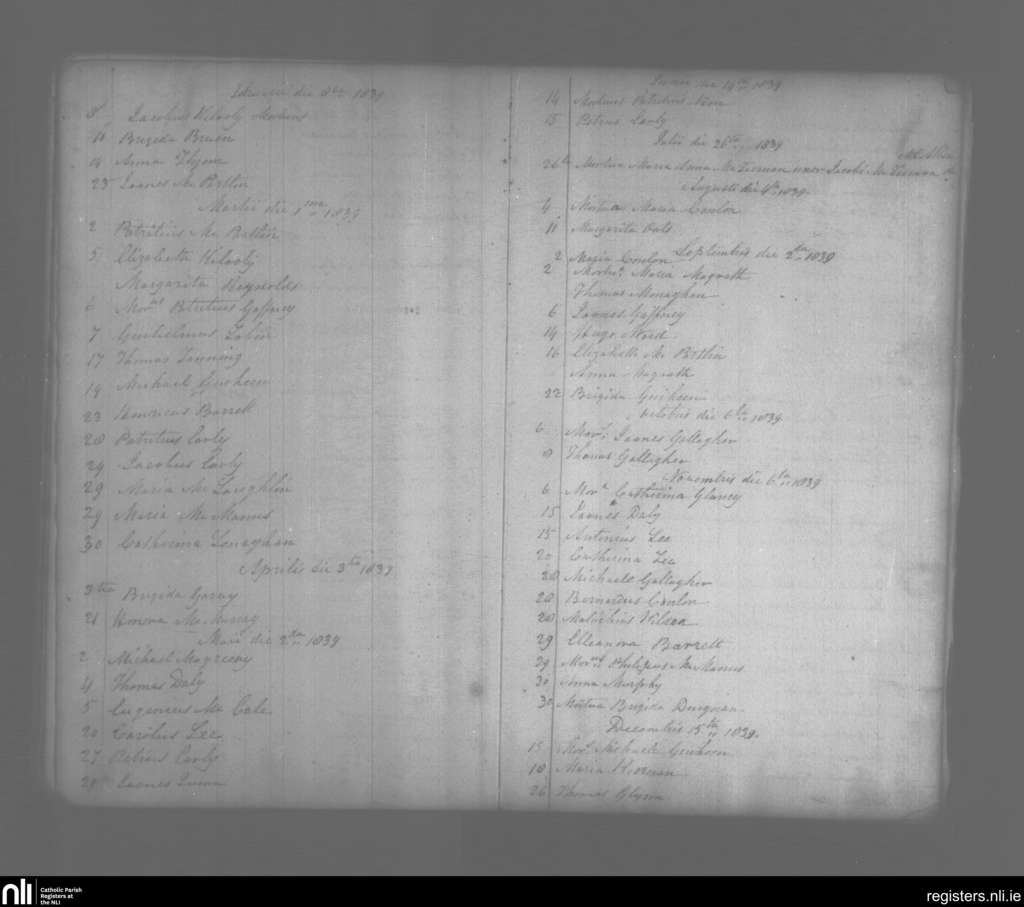 die 8th 1839
8 Jacobus Kilroly Mortuus
Brigida Bruen
Anna Flynn
25 Joanes Mc Partlin
Martii die 1ma 1839
2 Patritius Mc Partlin
5 Elizabeth Kilroly
Margarita Reynolds
6 Mortus Patritius Gaffney
7 Gulielmus Tobin
17 Thomas Fanning
19 Michael Guiheen
23 Henricus Barrett
28 Patritius Carly
29 Jacobus Carly
29 Maria Mc Loughlin
29 Maria Mc Manus
30 Catherina Lenaghan
Aprilis die 3tia 1839
3tia Brigida Garvey
21 Honora Mc
Maii die 2da 1839
2 Michael Magreevy
4 Thomas Daly
5 Eugenius Mc Cabe
20 Carolus Lee
27 Petrus Carly
28 Joanes Quinn
Junii die 14th 1839
14 Mortuus Patritius
15 Petrus Carly
Julii die 26th 1839
26th Mortua Maria Anna Mc Tiernan uxor Jacobi Mc Tiernan
Augusti die 4th 1839
4 Mortua Maria Conlon
11 Margarita Oats
Septembris die 2da 1839
2 Maria Conlon
2 Mortua Maria Magrath
Thomas Monaghan
6 Joanes Gaffney
14 Hugo Ward
16 Elizabeth Mc Partlin
Anna Magrath
22 Brigida Guiheen
Octobris die 6ta 1839
6 Mort Joanes Gallagher
8 Thomas Gallagher
Novembris die 6ta 1839
6 Mora Catherina Glancy
15 Joanes Daly
15 Antonius Lee
20 Catherina Lee
20 Michael Gallagher
20 Bernardus Conlon
20 Malachius Kilson
29 Elleanora Barrett
29 Morus Philipus Mc Manus
30 Anna Murphy
30 Mortua Brigida Duignan
Decembris 15ta 1839
15 Mort Michael Guiheen
18 Maria Heernan
26 Thomas Glynn
nli
Catholic Parish
Registers at
the NLI
registers.nli.ie